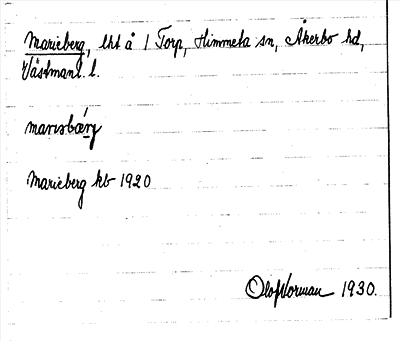 Marieberg, lht å 1 Torp, Himmeta sn, Åkerbo hd,
Västmanl. l.
Marieberg kb 1920
Olof Norman 1930.